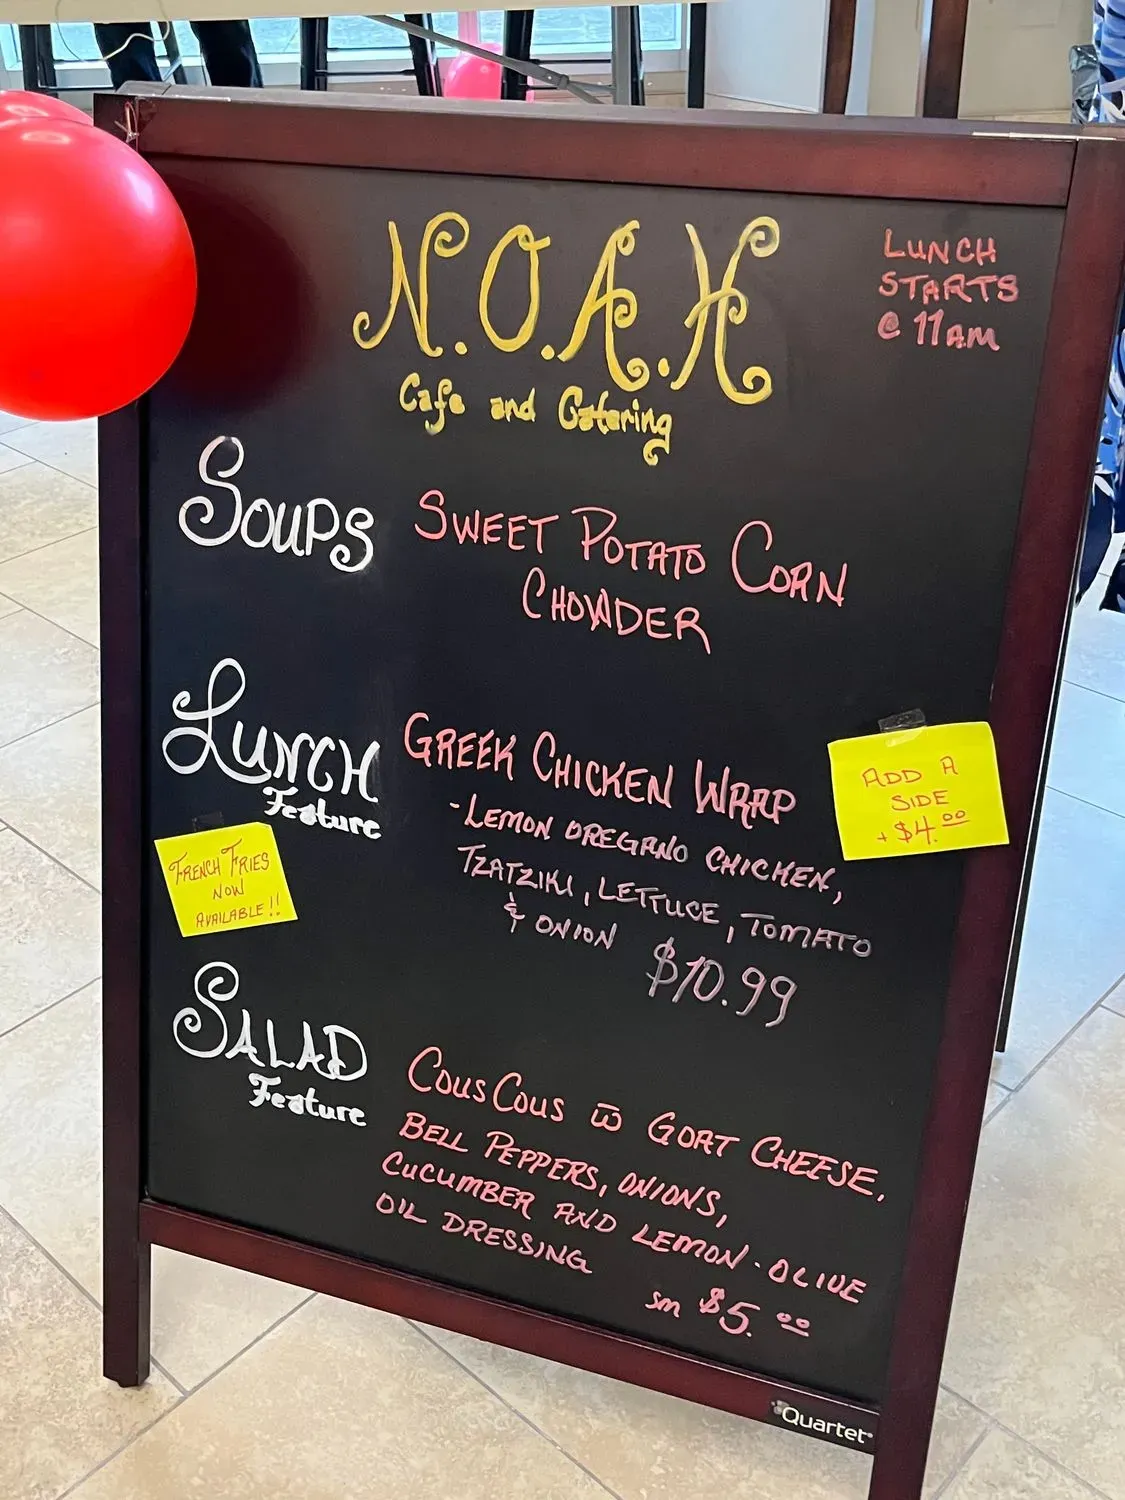 N.O.A.H
Cafe and Catering
LUNCH
STARTS
@ 11AM
SOUPS
SWEET POTATO CORN
CHOWDER
LUNCH
Feature
GREEK CHICKEN WRAP
-LEMON OREGANO CHICKEN,
TZATZIKI, LETTUCE, TOMATO
& ONION $10.99
ADD A
SIDE
+ $4.00
FRENCH FRIES
NOW
AVAILABLE!!
SALAD
Feature
COUSCOUS w̄ GOAT CHEESE,
BELL PEPPERS, ONIONS,
CUCUMBER AND LEMON-OLIVE
OIL DRESSING
sm $5.00
Quartet